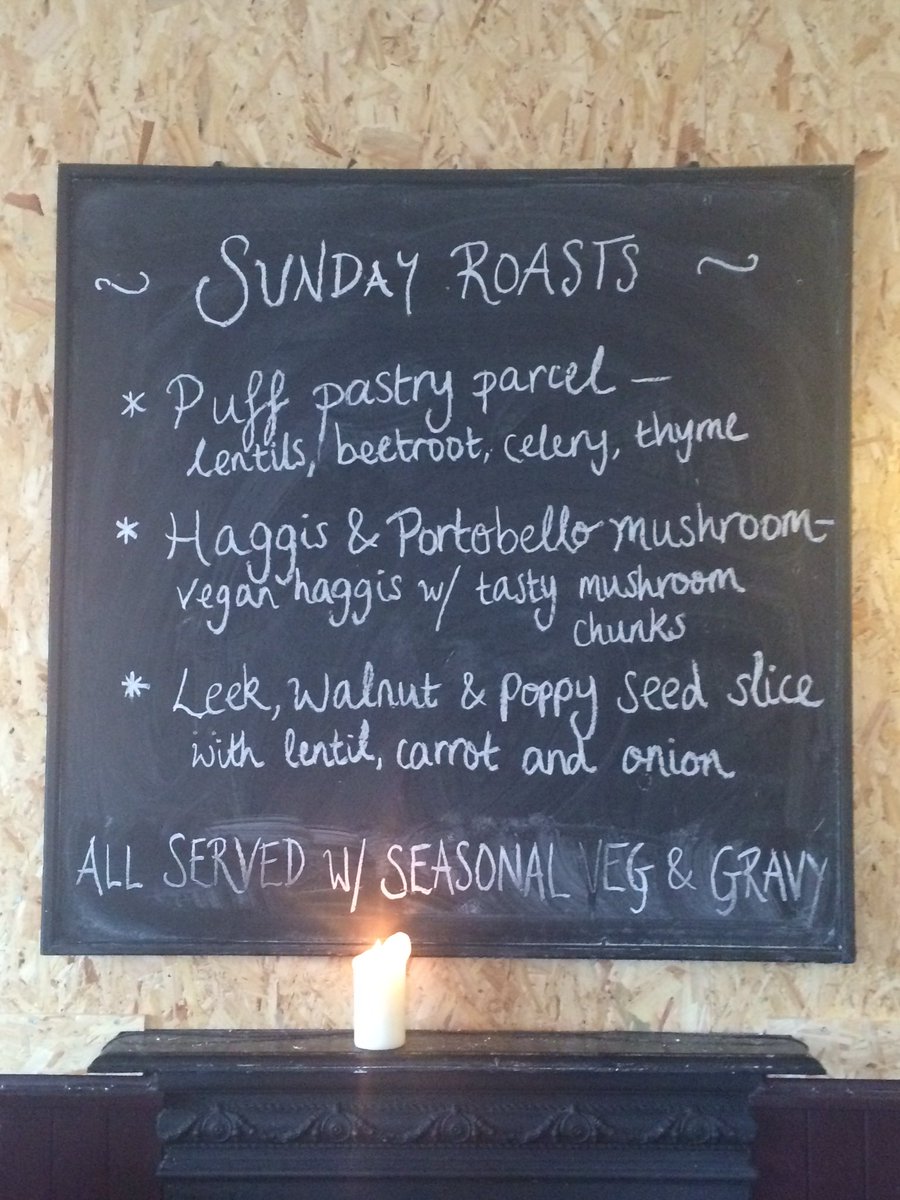 ~ SUNDAY ROASTS ~
* Puff pastry parcel —
lentils, beetroot, celery, thyme
* Haggis & Portobello mushroom-
vegan haggis w/ tasty mushroom
chunks
* Leek, walnut & poppy seed slice
with lentil, carrot and onion
ALL SERVED W/ SEASONAL VEG & GRAVY